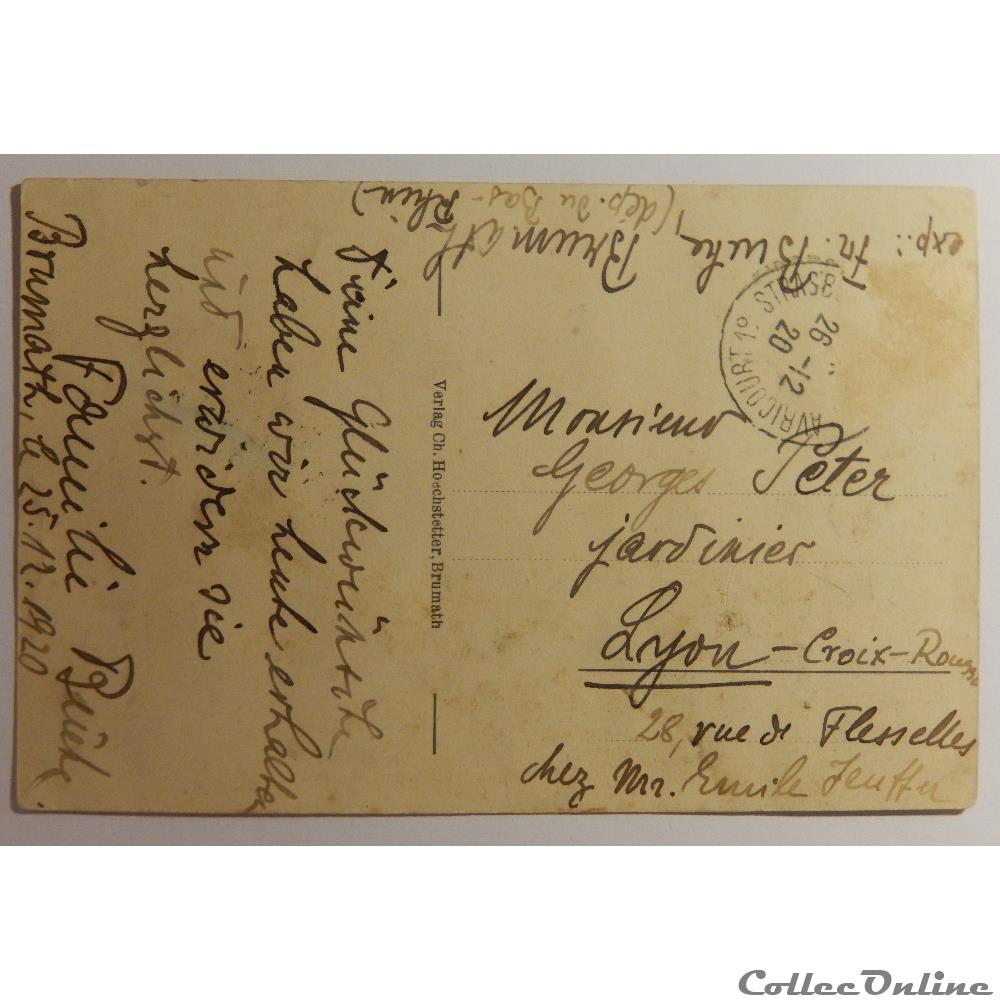 exp.: Fr. Bürke, Brumath
(dép. du Bas-
Rhin)
Deine Glückwünsche
haben wir heute erhalten
und erwidern sie
herzlichst.
Familie Bürke
Brumath, le 25.12.1920
Verlag Ch. Hoechstetter, Brumath
AVRICOURT 1° STRASB
26 -12
20
Monsieur
Georges Peter
jardinier
Lyon - Croix-Rousse
28, rue de Flesselles
chez Mr. Emile
CollecOnline